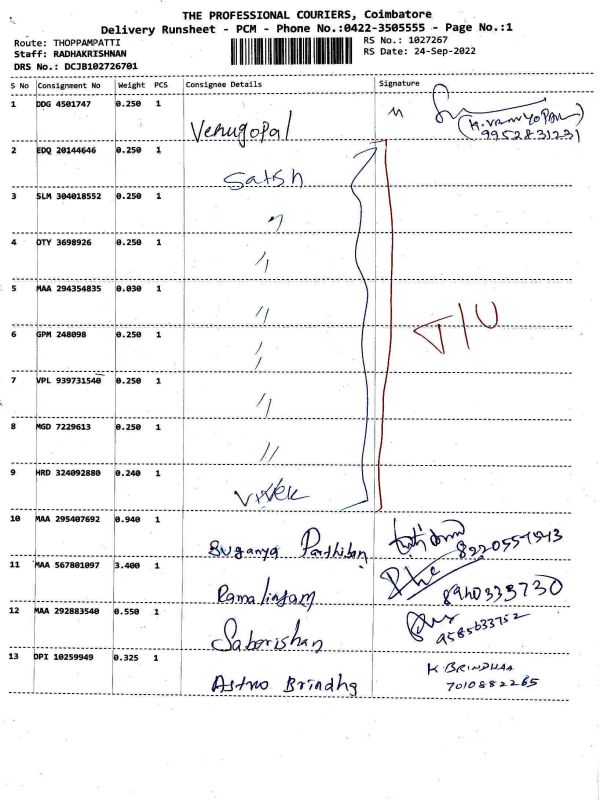 THE PROFESSIONAL COURIERS, Coimbatore
Delivery Runsheet - PCM - Phone No.:0422-3505555 - Page No.:1
Route: THOPPAMPATTI
Staff: RADHAKRISHNAN
DRS No.: DCJB102726701
RS No.: 1027267
RS Date: 24-Sep-2022
S No Consignment No Weight PCS Consignee Details Signature
1 DDG 4501747 0.250 1 Venugopal
9952831231
2 EDQ 20144646 0.250 1 Satish
3 SLM 304018552 0.250 1 "
4 OTY 3698926 0.250 1 "
5 MAA 294354835 0.030 1 "
6 GPM 248098 0.250 1 "
7 VPL 939731540 0.250 1 "
8 MGD 7229613 0.250 1 "
9 HRD 324092880 0.240 1 Vivek
T/U
10 MAA 295407692 0.940 1 Suganya Parthiban
11 MAA 567801097 3.400 1 Ramalingam
8940333730
12 MAA 292883540 0.550 1 Saborishan
9585633752
13 DPI 10259949 0.325 1 Astro Brindha
K. BRINDHAA
7010882265